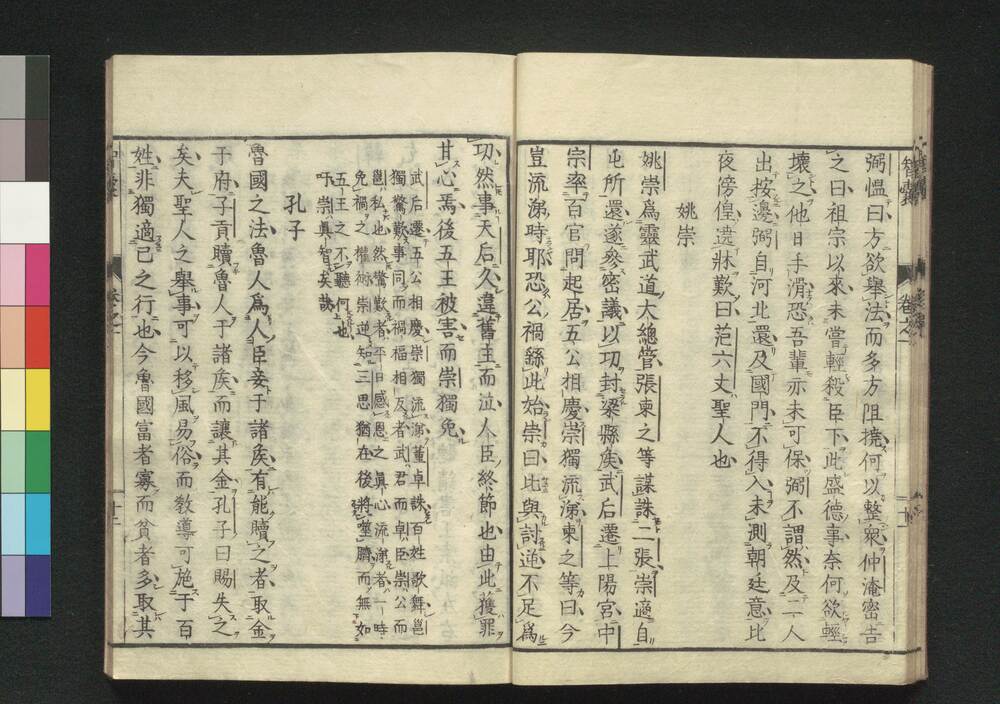 弼慍曰方欲舉法而多方阻撓何以整衆仲淹密告
之曰祖宗以來未嘗輕殺臣下此盛德事奈何欲輕
壞之他日手滑恐吾輩亦未可保弼不謂然及二人
出按邊弼自河北還及國門不得入未測朝廷意比
夜傍偟遶牀歎曰范六丈聖人也
姚崇
姚崇爲靈武道大總管張柬之等謀誅二張崇適自
屯所還遂參密議以功封梁縣矦武后遷上陽宮中
宗率百官問起居五公相慶崇獨流涕柬之等曰今
豈流涕時耶恐公禍繇此始崇曰比與討逆不足爲
功然事天后久違舊主而泣人臣終節也由此獲罪
甘心焉後五王被害而崇獨免
武后遷五公相慶崇獨流涕董卓誅百姓歌舞邕
獨驚歎事同而禍福相反者武君而卓臣崇公而
邕私也然驚歎者平日感恩之眞心流涕者一時
免禍之權術崇逆知三思猶在後將噬臍而無如
五王之不聽何也
吁崇眞智矣哉
孔子
魯國之法魯人爲人臣妾于諸矦有能贖之者取金
于府子貢贖魯人于諸矦而讓其金孔子曰賜失之
矣夫聖人之舉事可以移風易俗而敎導可施于百
姓非獨適己之行也今魯國富者寡而貧者多取其
智囊
卷之一
十二